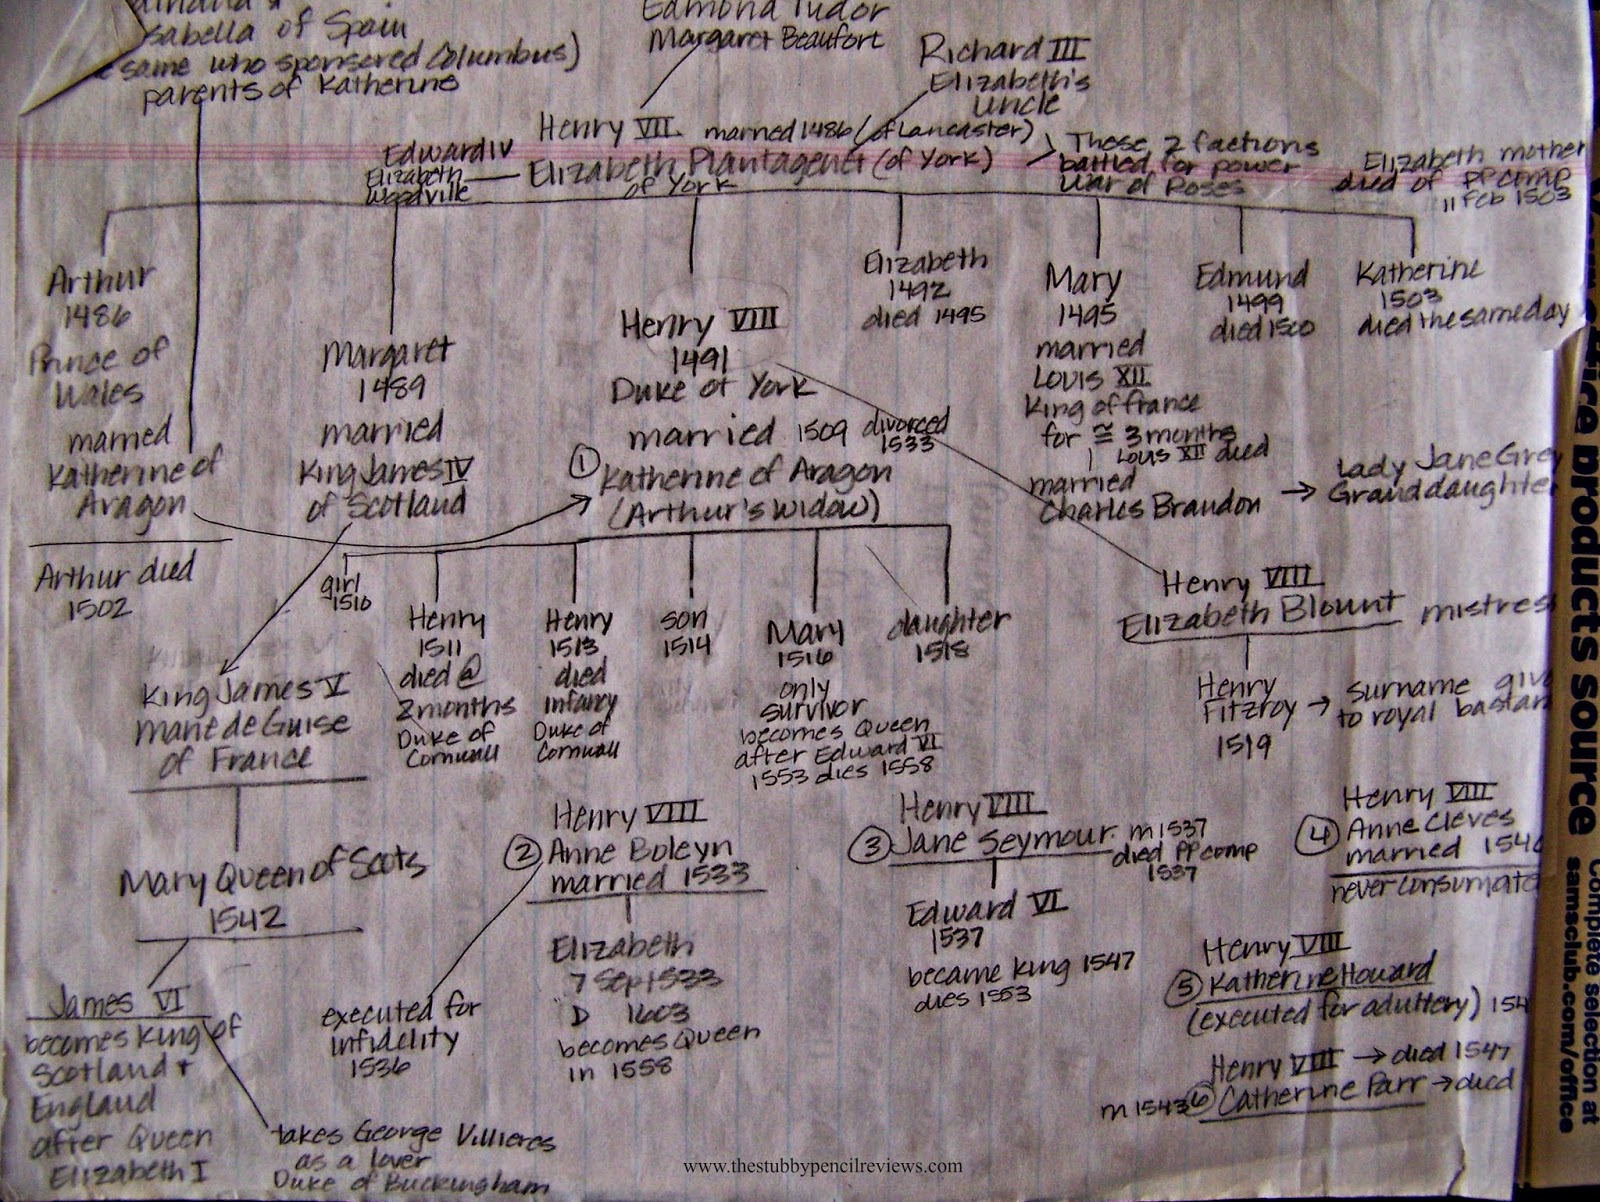 Isabella of Spain
same who sponsored Columbus)
parents of Katherine
Edmond Tudor
Margaret Beaufort
Richard III
Elizabeth's
uncle
Henry VII married 1486 (of Lancaster)
Elizabeth Plantagenet (of York)
of York
Edward IV
Elizabeth
Woodville
These 2 factions
battled for power
War of Roses
Elizabeth mother
died of PP comp
11 Feb 1503
Arthur
1486
Prince of
Wales
married
Katherine of
Aragon
Arthur died
1502
Margaret
1489
married
King James IV
of Scotland
Henry VIII
1491
Duke of York
married 1509 divorced
1533
① Katherine of Aragon
(Arthur's Widow)
Elizabeth
1492
died 1495
Mary
1495
married
Louis XII
King of france
for ≅ 3 months
Louis XII died
married
Charles Brandon → Lady Jane Grey
Granddaughter
Edmund
1499
died 1500
Katherine
1503
died the same day
girl
1510
Henry
1511
died @
2 months
Duke of
Cornwall
Henry
1513
died
infancy
Duke of
Cornwall
son
1514
Mary
1516
only
survivor
becomes Queen
after Edward VI
1553 dies 1558
daughter
1518
Henry VIII
Elizabeth Blount mistres
Henry
Fitzroy →
1519
surname giv
to royal bastar
King James V
Marie de Guise
of France
Mary Queen of Scots
1542
James VI
becomes King of
Scotland +
England
after Queen
Elizabeth I
takes George Villieres
as a lover
Duke of Buckingham
Henry VIII
② Anne Boleyn
married 1533
executed for
infidelity
1536
Elizabeth
7 Sep 1533
D 1603
becomes Queen
in 1558
Henry VIII
③ Jane Seymour m 1537
died PP comp
1537
Edward VI
1537
became king 1547
dies 1553
Henry VIII
④ Anne Cleves
married 1540
never consumate
Henry VIII
⑤ Katherine Howard
(executed for adultery) 154
Henry VIII → died 1547
m 1543 ⑥ Catherine Parr → died
www.thestubbypencilreviews.com
office products source
Complete selection at
samsclub.com/office